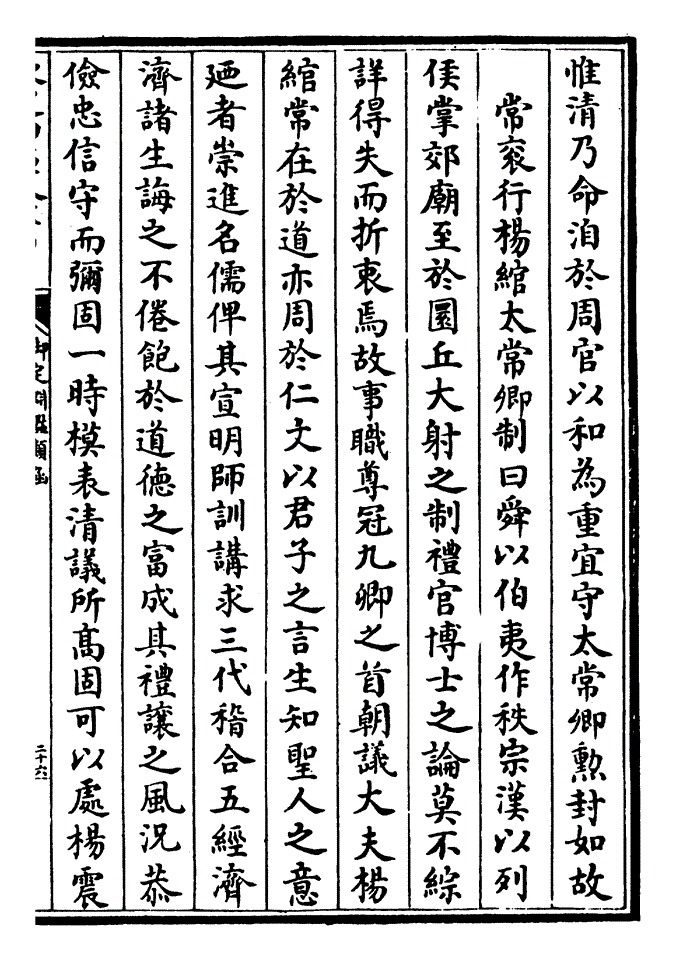 惟清乃命洎於周官以和為重宜守太常卿勲封如故
常衮行楊綰太常卿制曰舜以伯夷作秩宗漢以列
侯掌郊廟至於圜丘大射之制禮官博士之論莫不綜
詳得失而折衷焉故事職尊冠九卿之首朝議大夫楊
綰常在於道亦周於仁文以君子之言生知聖人之意
廼者崇進名儒俾其宣明師訓講求三代稽合五經濟
濟諸生誨之不倦飽於道德之富成其禮讓之風況恭
儉忠信守而彌固一時模表清議所髙固可以處楊震
御定淵鑑類函
二十六